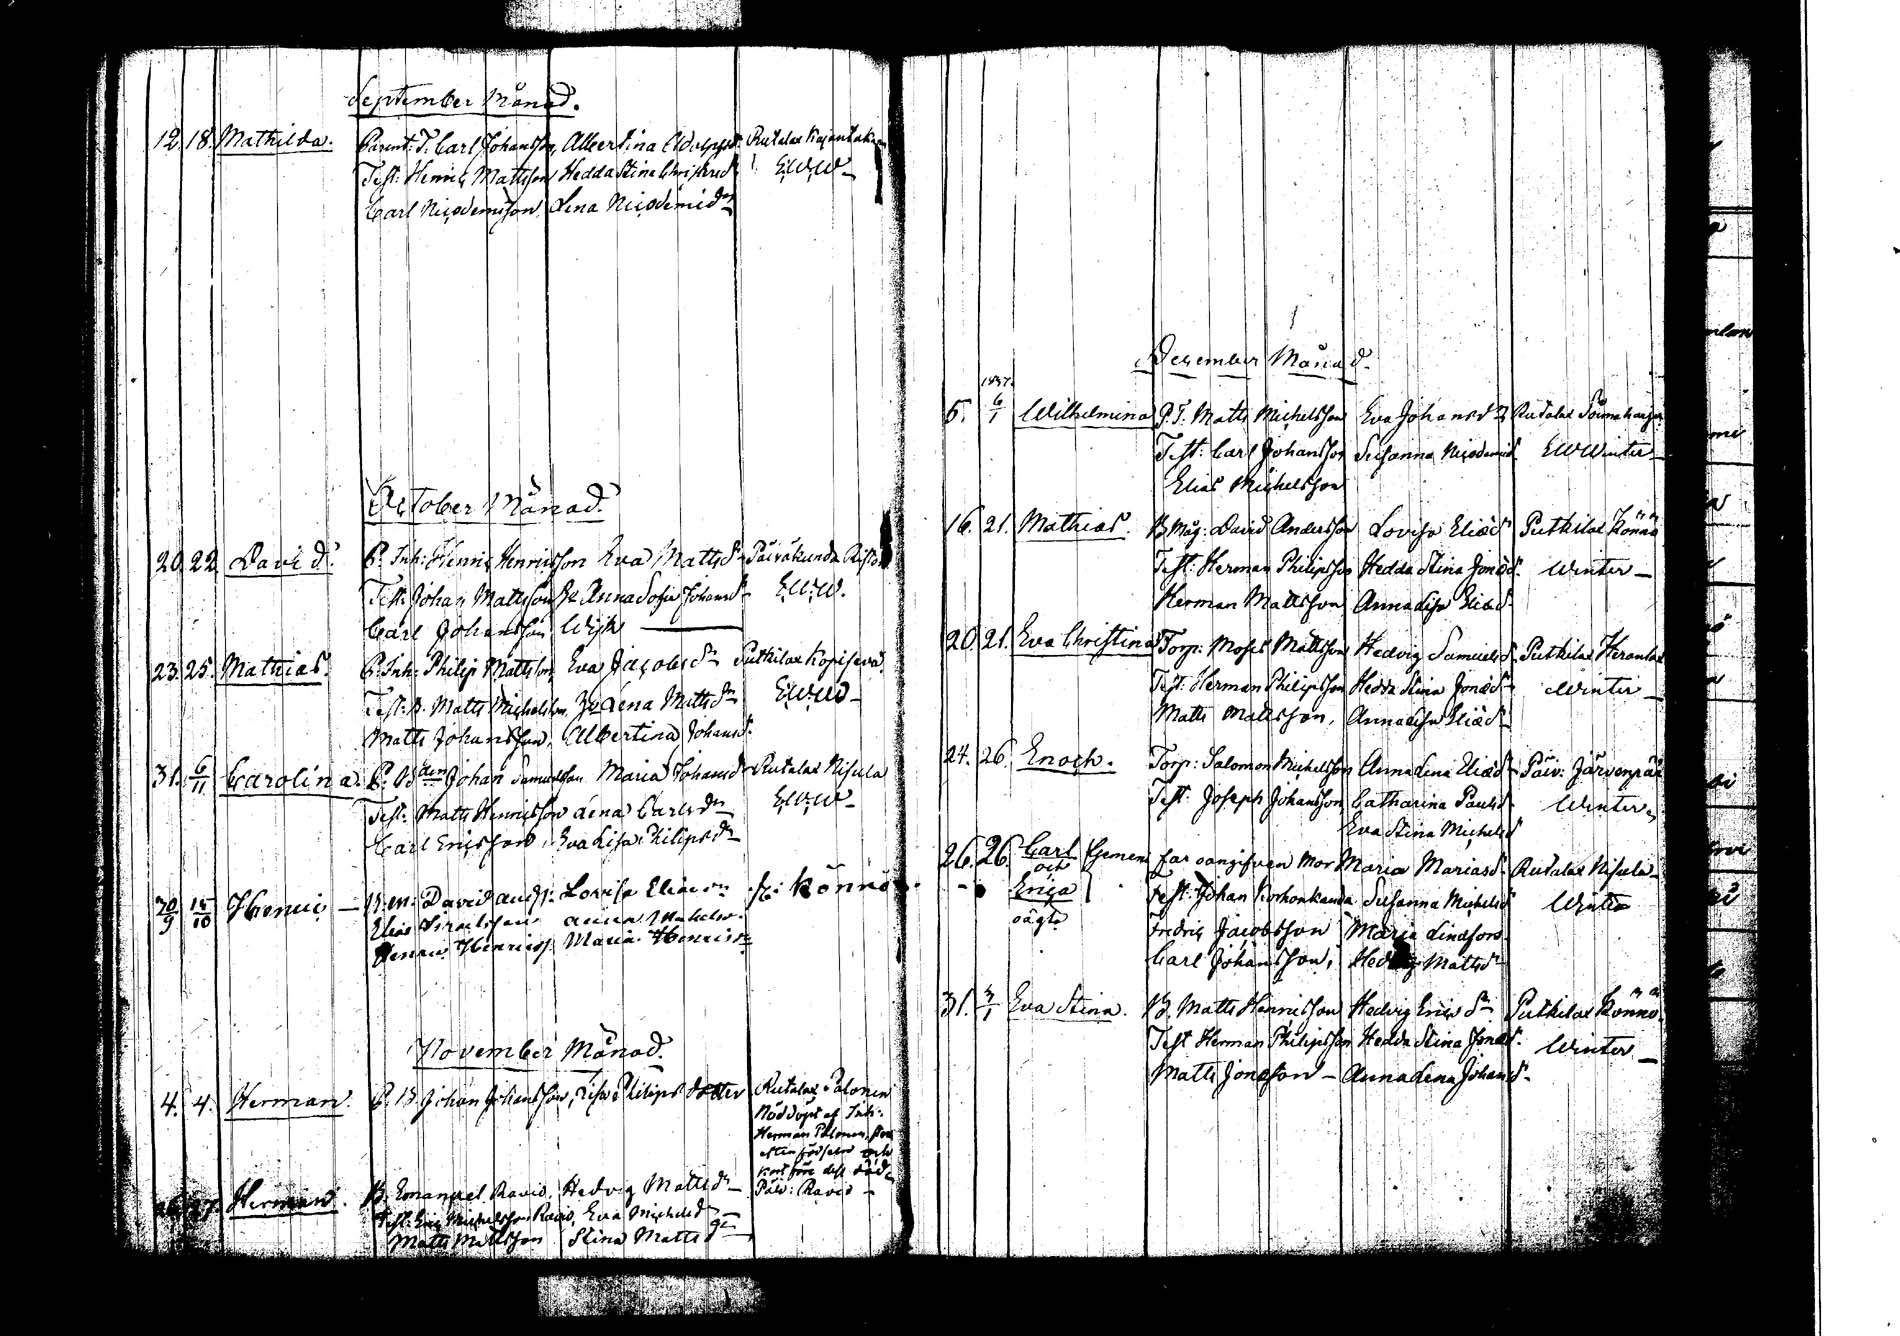 September Månad.
12. 18. Mathilda. Parent: T. Carl Johansson, Albertina Rutalax
Test: Henric Mattsson Hedda Stina EWW
Carl Nicodemsson Lena Nicodemidr
October Månad.
20. 22. David. P. Inh: Henric Henricsson Eva Mattsdr Päiväkunda
Test: Johan Mattsson Anna Sofia Johansd EWW.
Carl Johansson Wijk
23. 25. Mathias. P. Inh: Philip Mattsson, Eva Jacobsdr Putkilax
Test: B. Matts Michelsson, Lena Mattsdr EWW
Matts Johansson, Albertina Johansd.
31. 6/11 Carolina. P. Johan Samuelsson Maria Johansdr Rutalax Nisula
Test: Matts Henricsson Lena Carlsdr EWW
Carl Ericsson, Eva Lisa Philipsdr
30/9 15/10 Henric B.m: David Anderss: Lovisa Eliædr Könnö
Elias Anna
Henric Henricss. Maria Henricsdr
November Månad.
4. 4. Herman. P. B. Johan Johansson, Lisa Philips dotter Rutalax Palonen
Nöddöpt af Inh:
Herman Palonen,
efter födseln och
kort före dess död
26. 27. Herman. B. Emanuel Ravio, Hedvig Mattsdr Päiv: Ravio
Test: Eric Michelsson Ravio, Eva Michelsd
Matts Mattsson Stina Mattsd
December Månad.
1837.
5. 6/1 Wilhelmina P. T. Matts Michelsson Eva Johansdr Rutalax
Test: Carl Johansson Susanna Nicodemid EWWinter
Elias Michelsson
16. 21. Mathias. B Måg: David Andersson Lovisa Eliædr Putkilax Könnö
Test: Herman Philipsson Hedda Stina Jonæd. Winter
Herman Mattsson Anna Lisa Eliæd
20. 21. Eva Christina Torp: Moses Mattsson Hedvig Samuelsd. Putkilax
Test: Herman Philipsson Hedda Stina Jonæd Winter
Matts Mattsson, Anna Lisa Eliæd
24. 26. Enoch. Torp: Salomon Michelsson Anna Lena Eliæd Päiv: Järvenpää
Test: Joseph Johansson Catharina Paulsd. Winter
Eva Stina Michelsd
26. 26. Carl Gemeni far oangifven Mor Maria Mariasd. Rutalax Nisula
och
Erica Test: Johan Korhonkanda Susanna Michelsd Winter
oägta Fredric Jacobsson Maria Lindfors
Carl Johansson, Hedvig Mattsd
31. 3/1 Eva Stina. B. Matts Henricsson Hedvig Ericsdr Putkilax Könnö
Test Herman Philipsson Hedda Stina Jonæd. Winter
Matts Jonasson Anna Lena Johansd.